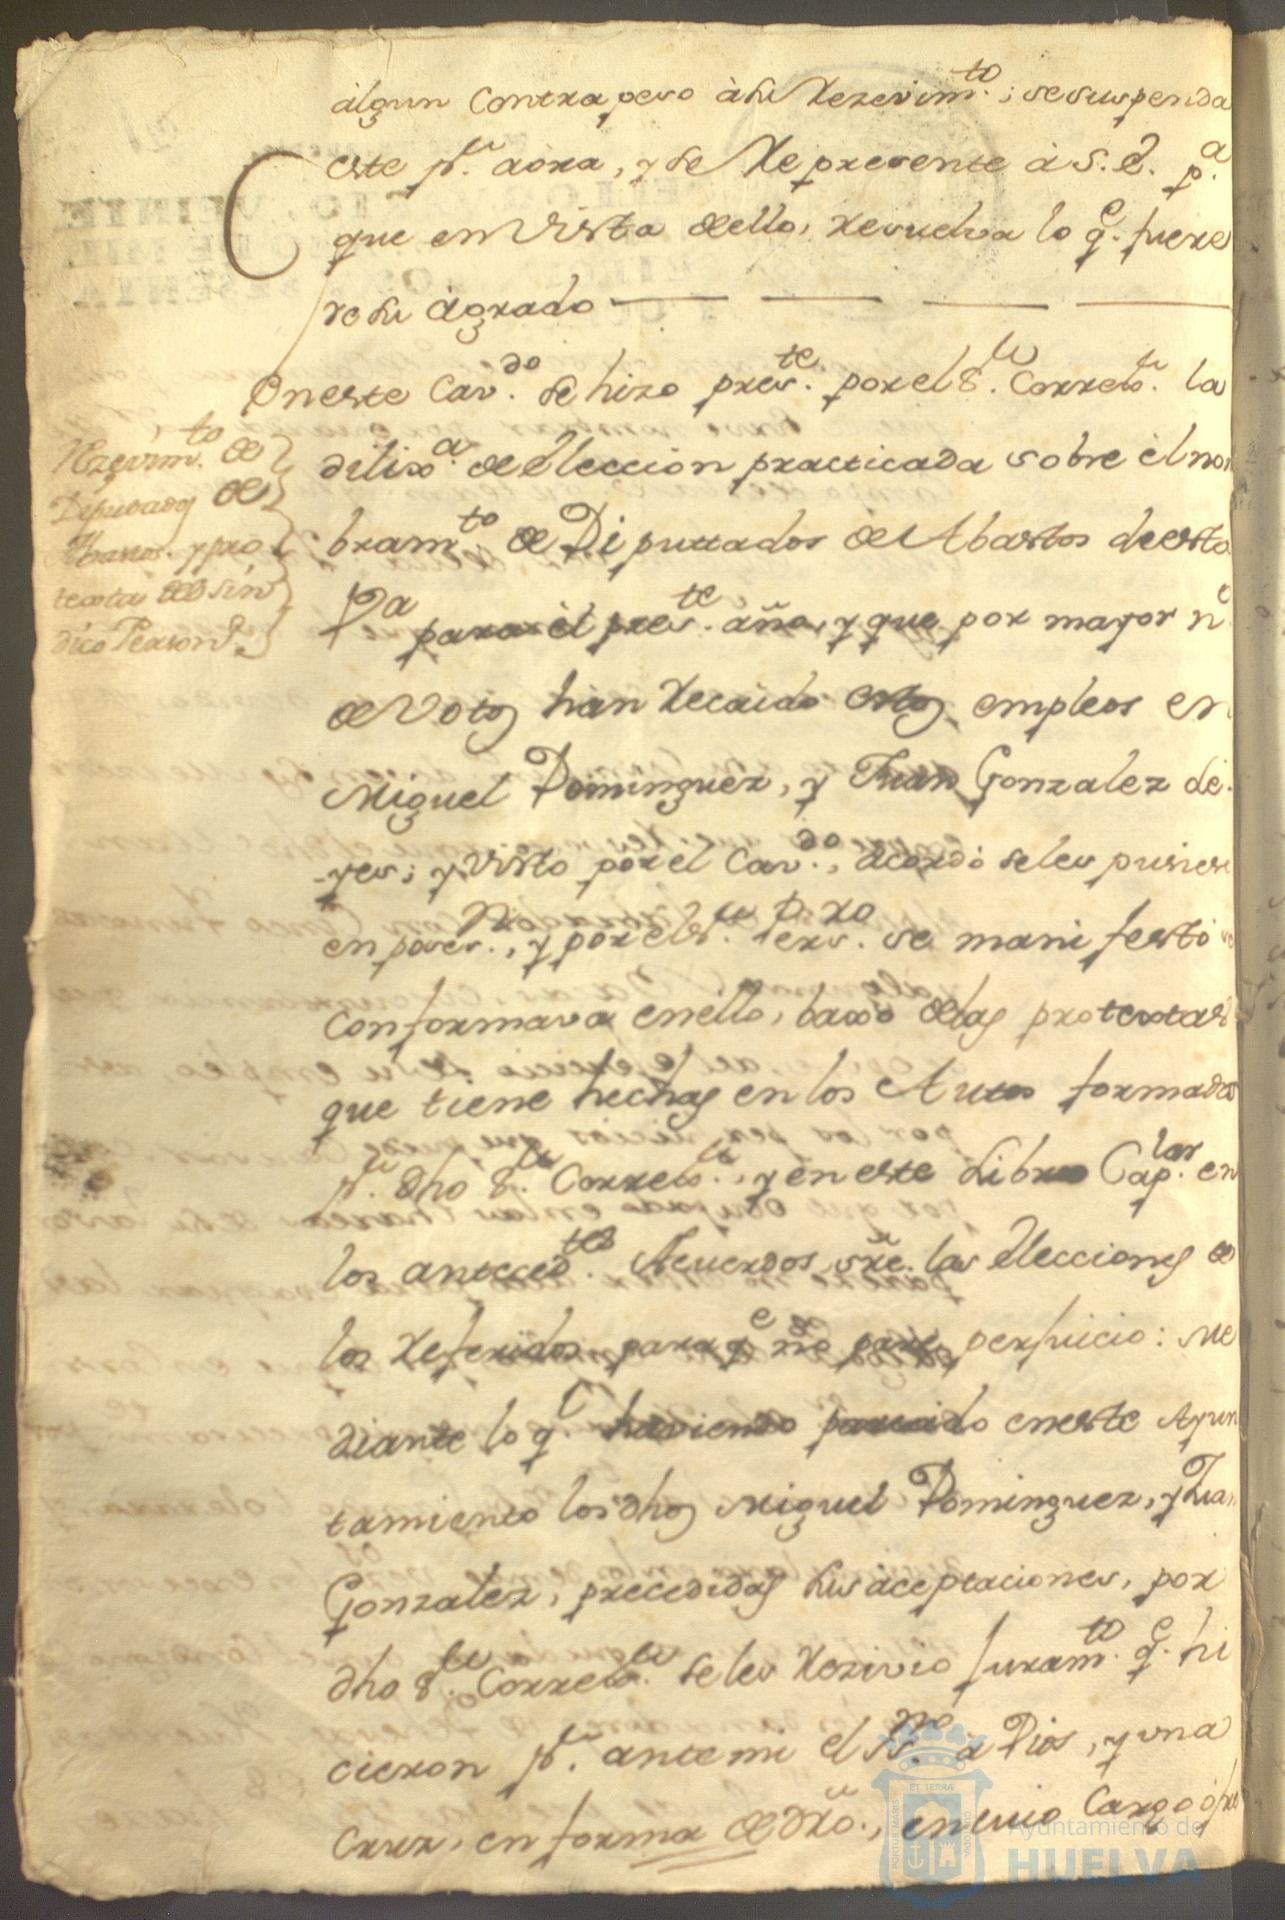 algun Contrapeso à su Rezevim.to; se suspenda
este p.r aora, y se Represente à S. E. p.a
que en Vista dello, resuelva lo q.e fuere
de su agrado
En este Cav.do se hizo pres.te por el S.r Correx.r la
dilix.a de Eleccion practicada sobre el nom
bram.to de Diputtados de Abastos de esta
V.a para el pres.te año, y que por mayor n.o
de Votos han Recaido estos empleos en
Miguel Dominguez, y Juan Gonzalez de
yes; y Visto por el Cav.do, acordó se les pusiese
en poses.n, y por el S.r Pers.ro se manifestó se
Conformava en ello, baxo de las protextas
que tiene hechas en los Autos formados
p.r dho S.r Correx.r, y en este Libro Cap.lar en
los anteced.tes Acuerdos sre. las Elecciones de
los Referidos para q.e no pare perjuicio: Me
diante lo q.l haviendo parecido en este Ayun
tamiento los dhos Miguel Dominguez, y Juan
Gonzalez, precedidas sus aceptaciones, por
dho S.r Correx.r se les Rezivio Juram.to q.e hi
cieron p.r ante mi el Ss.no à Dios, y una
Cruz, en forma de dro., en cuio Cargo ofre
Rezevim.to de
Diputados de
Abastos y pro
texta del Sin
dico Person.o
Ayuntamiento de
HUELVA